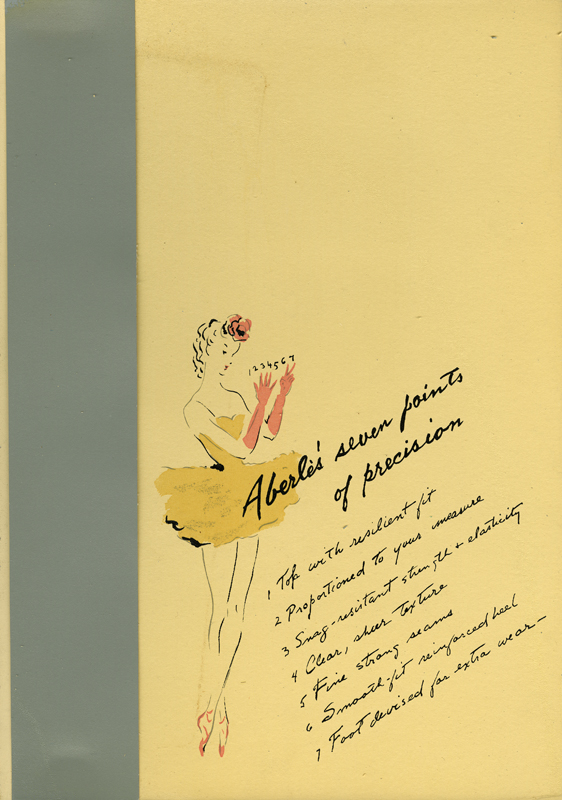 1234567
Aberle's seven points
of precision
1 Top with resilient fit
2 Proportioned to your measure
3 Snag-resistant strength + elasticity
4 Clear, sheer texture
5 Fine strong seams
6 Smooth-fit reinforced heel
7 Foot devised for extra wear—